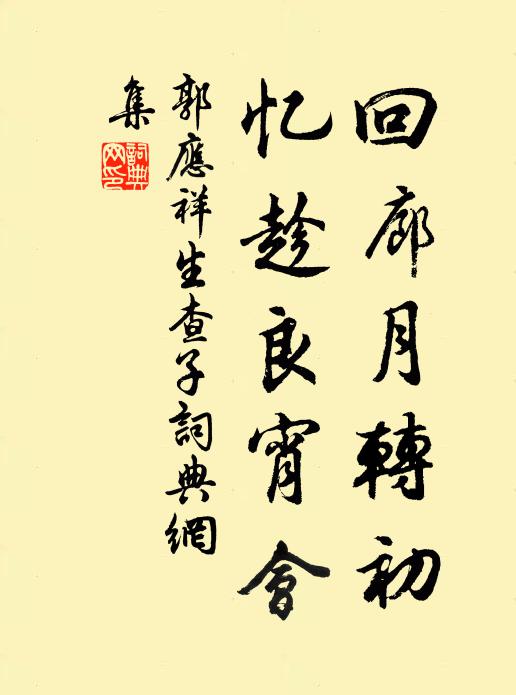 回廊月轉初
忆趁良宵會
郭應祥生查子詞典網
集
詞典
网印